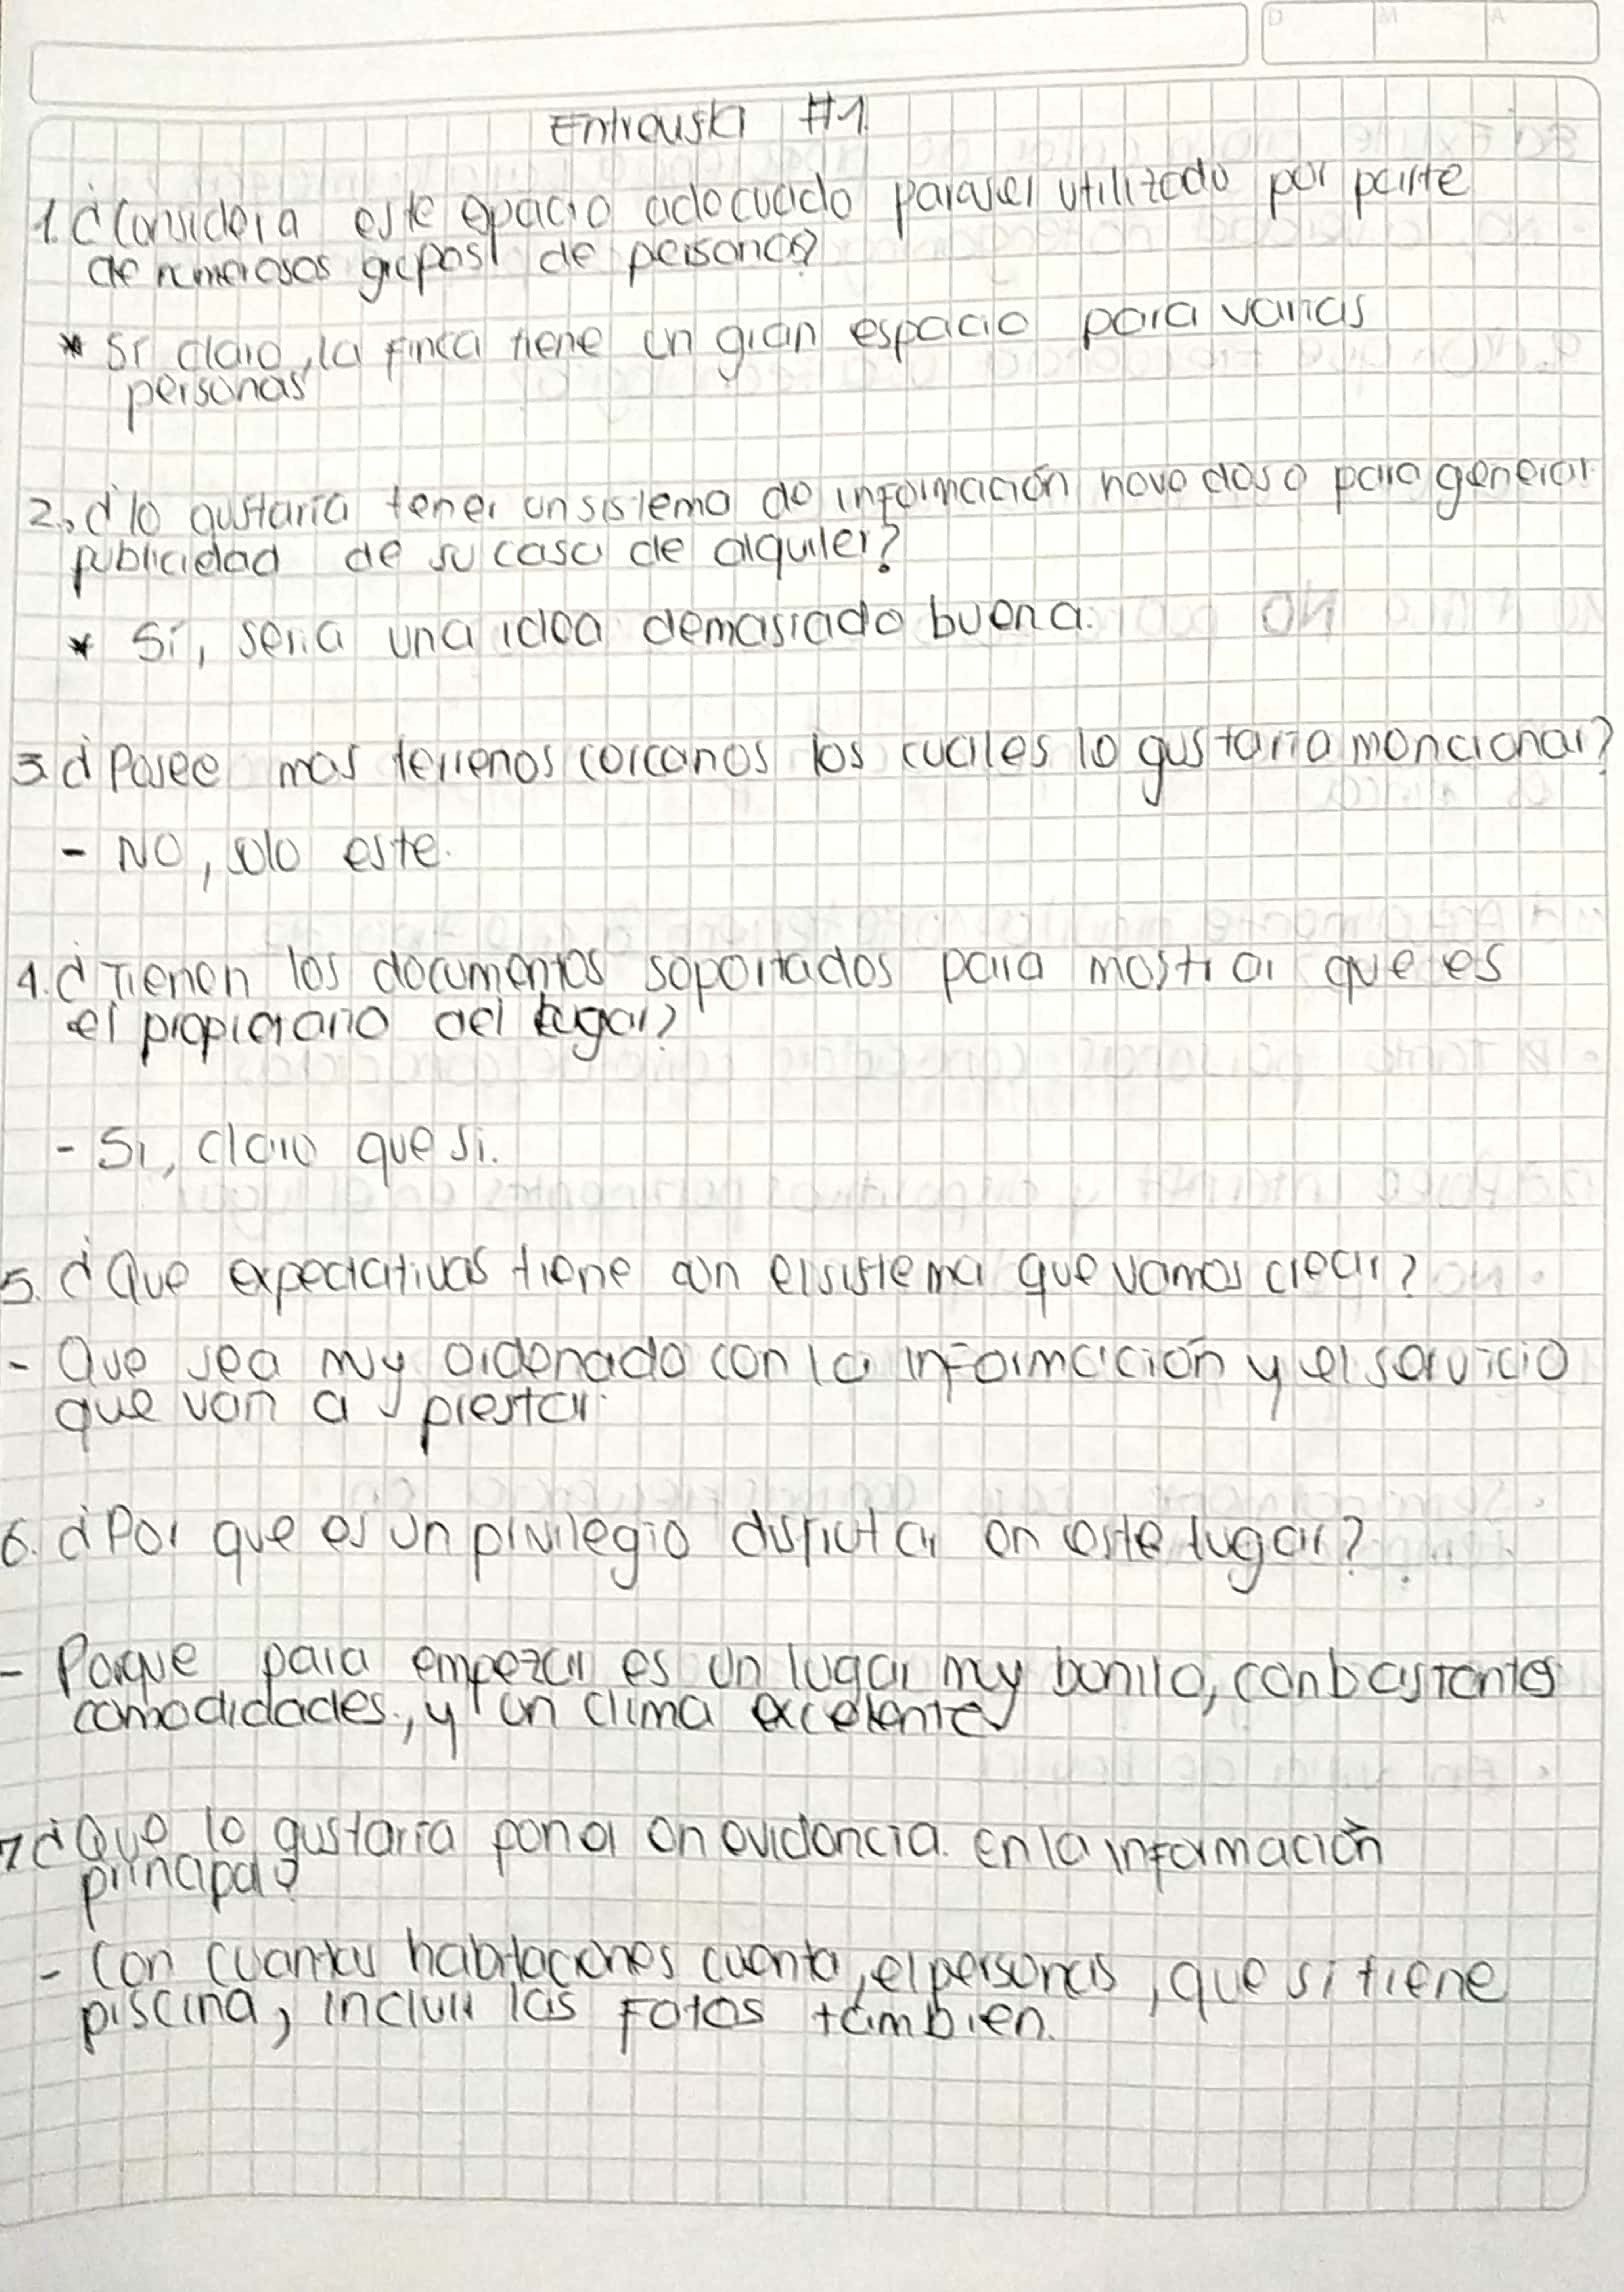 Entrevista #1.
1. ¿Considera este epacio adecuado para ser utilizado por parte
de numerosos grupos de personas?
* Sí claro, la finca tiene un gran espacio para varias
personas
2. ¿le gustaría tener un sistema de información novedoso para generar
publicidad de su casa de alquiler?
* Sí, seria una idea demasiado buena.
3. ¿Posee mas terrenos cercanos los cuales le gustaria mencionar?
- NO, solo este.
4. ¿Tienen los documentos soportados para mostrar que es
el propietario del lugar?
- Si, claro que si.
5. ¿Que expectativas tiene con el sistema que vamos crear?
- Que sea muy ordenado con la información y el servicio
que van a prestar.
6. ¿Por que es un privilegio disfrutar en este lugar?
- Porque para empezar es un lugar muy bonito, con bastantes
comodidades, y un clima excelente
7 ¿Que le gustaría poner en evidencia en la información
principal?
- Con cuantas habitaciones cuenta, el personas, que si tiene
piscina, incluir las fotos tambien.